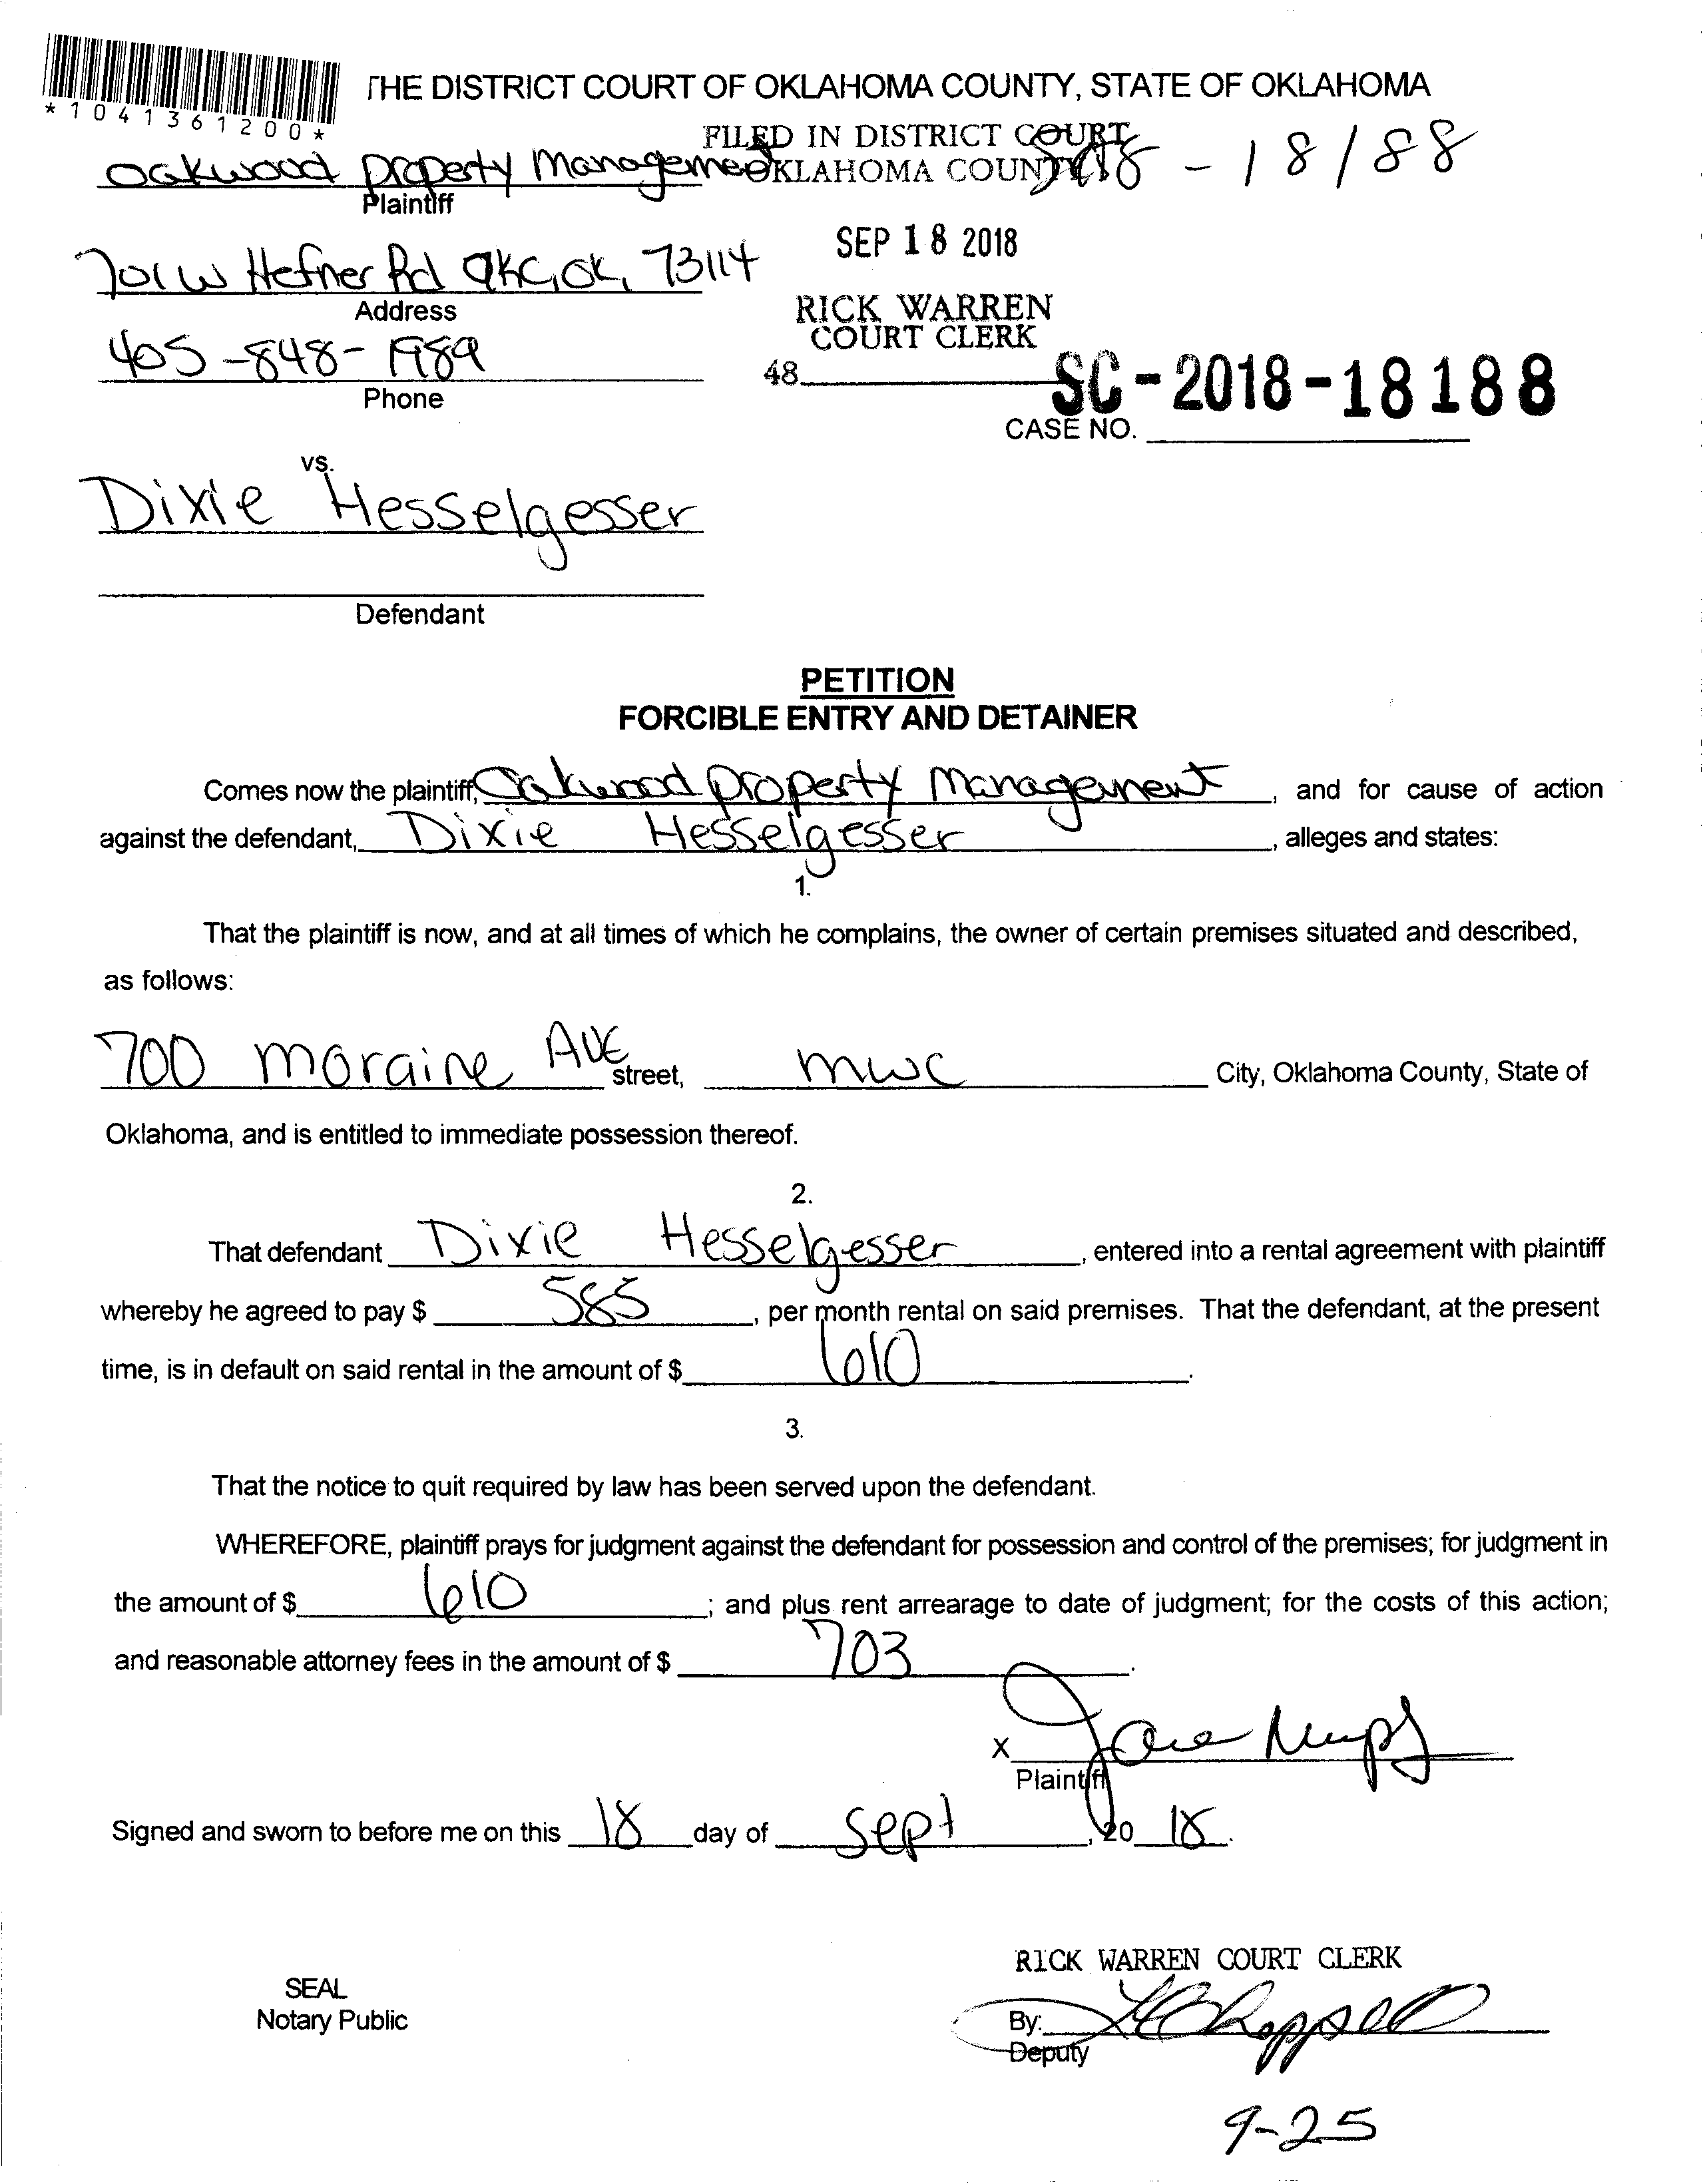 *1041361200*
THE DISTRICT COURT OF OKLAHOMA COUNTY, STATE OF OKLAHOMA
FILED IN DISTRICT COURT
OKLAHOMA COUNTY
18 - 18188
Oakwood Property Management
Plaintiff
SEP 18 2018
701 W Hefner Rd OKC, OK, 73114
Address
RICK WARREN
COURT CLERK
405-848-1989
Phone
48
SC-2018-18188
CASE NO.
vs.
Dixie Hesselgesser
Defendant
PETITION
FORCIBLE ENTRY AND DETAINER
Comes now the plaintiff, Oakwood Property Management, and for cause of action
against the defendant, Dixie Hesselgesser, alleges and states:
1.
That the plaintiff is now, and at all times of which he complains, the owner of certain premises situated and described,
as follows:
700 Moraine Ave street, mwc City, Oklahoma County, State of
Oklahoma, and is entitled to immediate possession thereof.
2.
That defendant Dixie Hesselgesser, entered into a rental agreement with plaintiff
whereby he agreed to pay $ 585, per month rental on said premises. That the defendant, at the present
time, is in default on said rental in the amount of $ 610.
3.
That the notice to quit required by law has been served upon the defendant.
WHEREFORE, plaintiff prays for judgment against the defendant for possession and control of the premises; for judgment in
the amount of $ 610; and plus rent arrearage to date of judgment; for the costs of this action;
and reasonable attorney fees in the amount of $ 703.
X
Plaintiff
Signed and sworn to before me on this 18 day of Sept, 20 18.
RICK WARREN COURT CLERK
SEAL
Notary Public
By:
Deputy
9-25